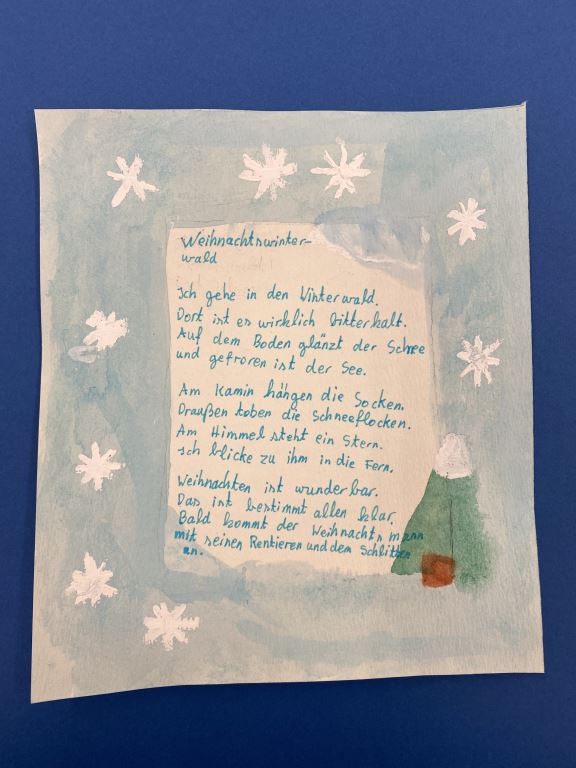 Weihnachtswinter-
wald
Ich gehe in den Winterwald.
Dort ist es wirklich bitterkalt.
Auf dem Boden glänzt der Schnee
und gefroren ist der See.
Am Kamin hängen die Socken.
Draußen toben die Schneeflocken.
Am Himmel steht ein Stern.
Ich blicke zu ihm in die Fern.
Weihnachten ist wunderbar.
Das ist bestimmt allen klar.
Bald kommt der Weihnachtsmann
mit seinen Rentieren und dem Schlitten
an.